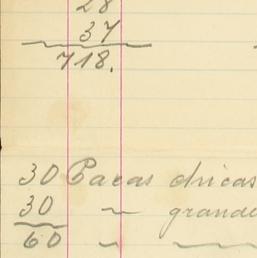 28
37
718.
30 Pacas chicas
30 " grande
60 " "